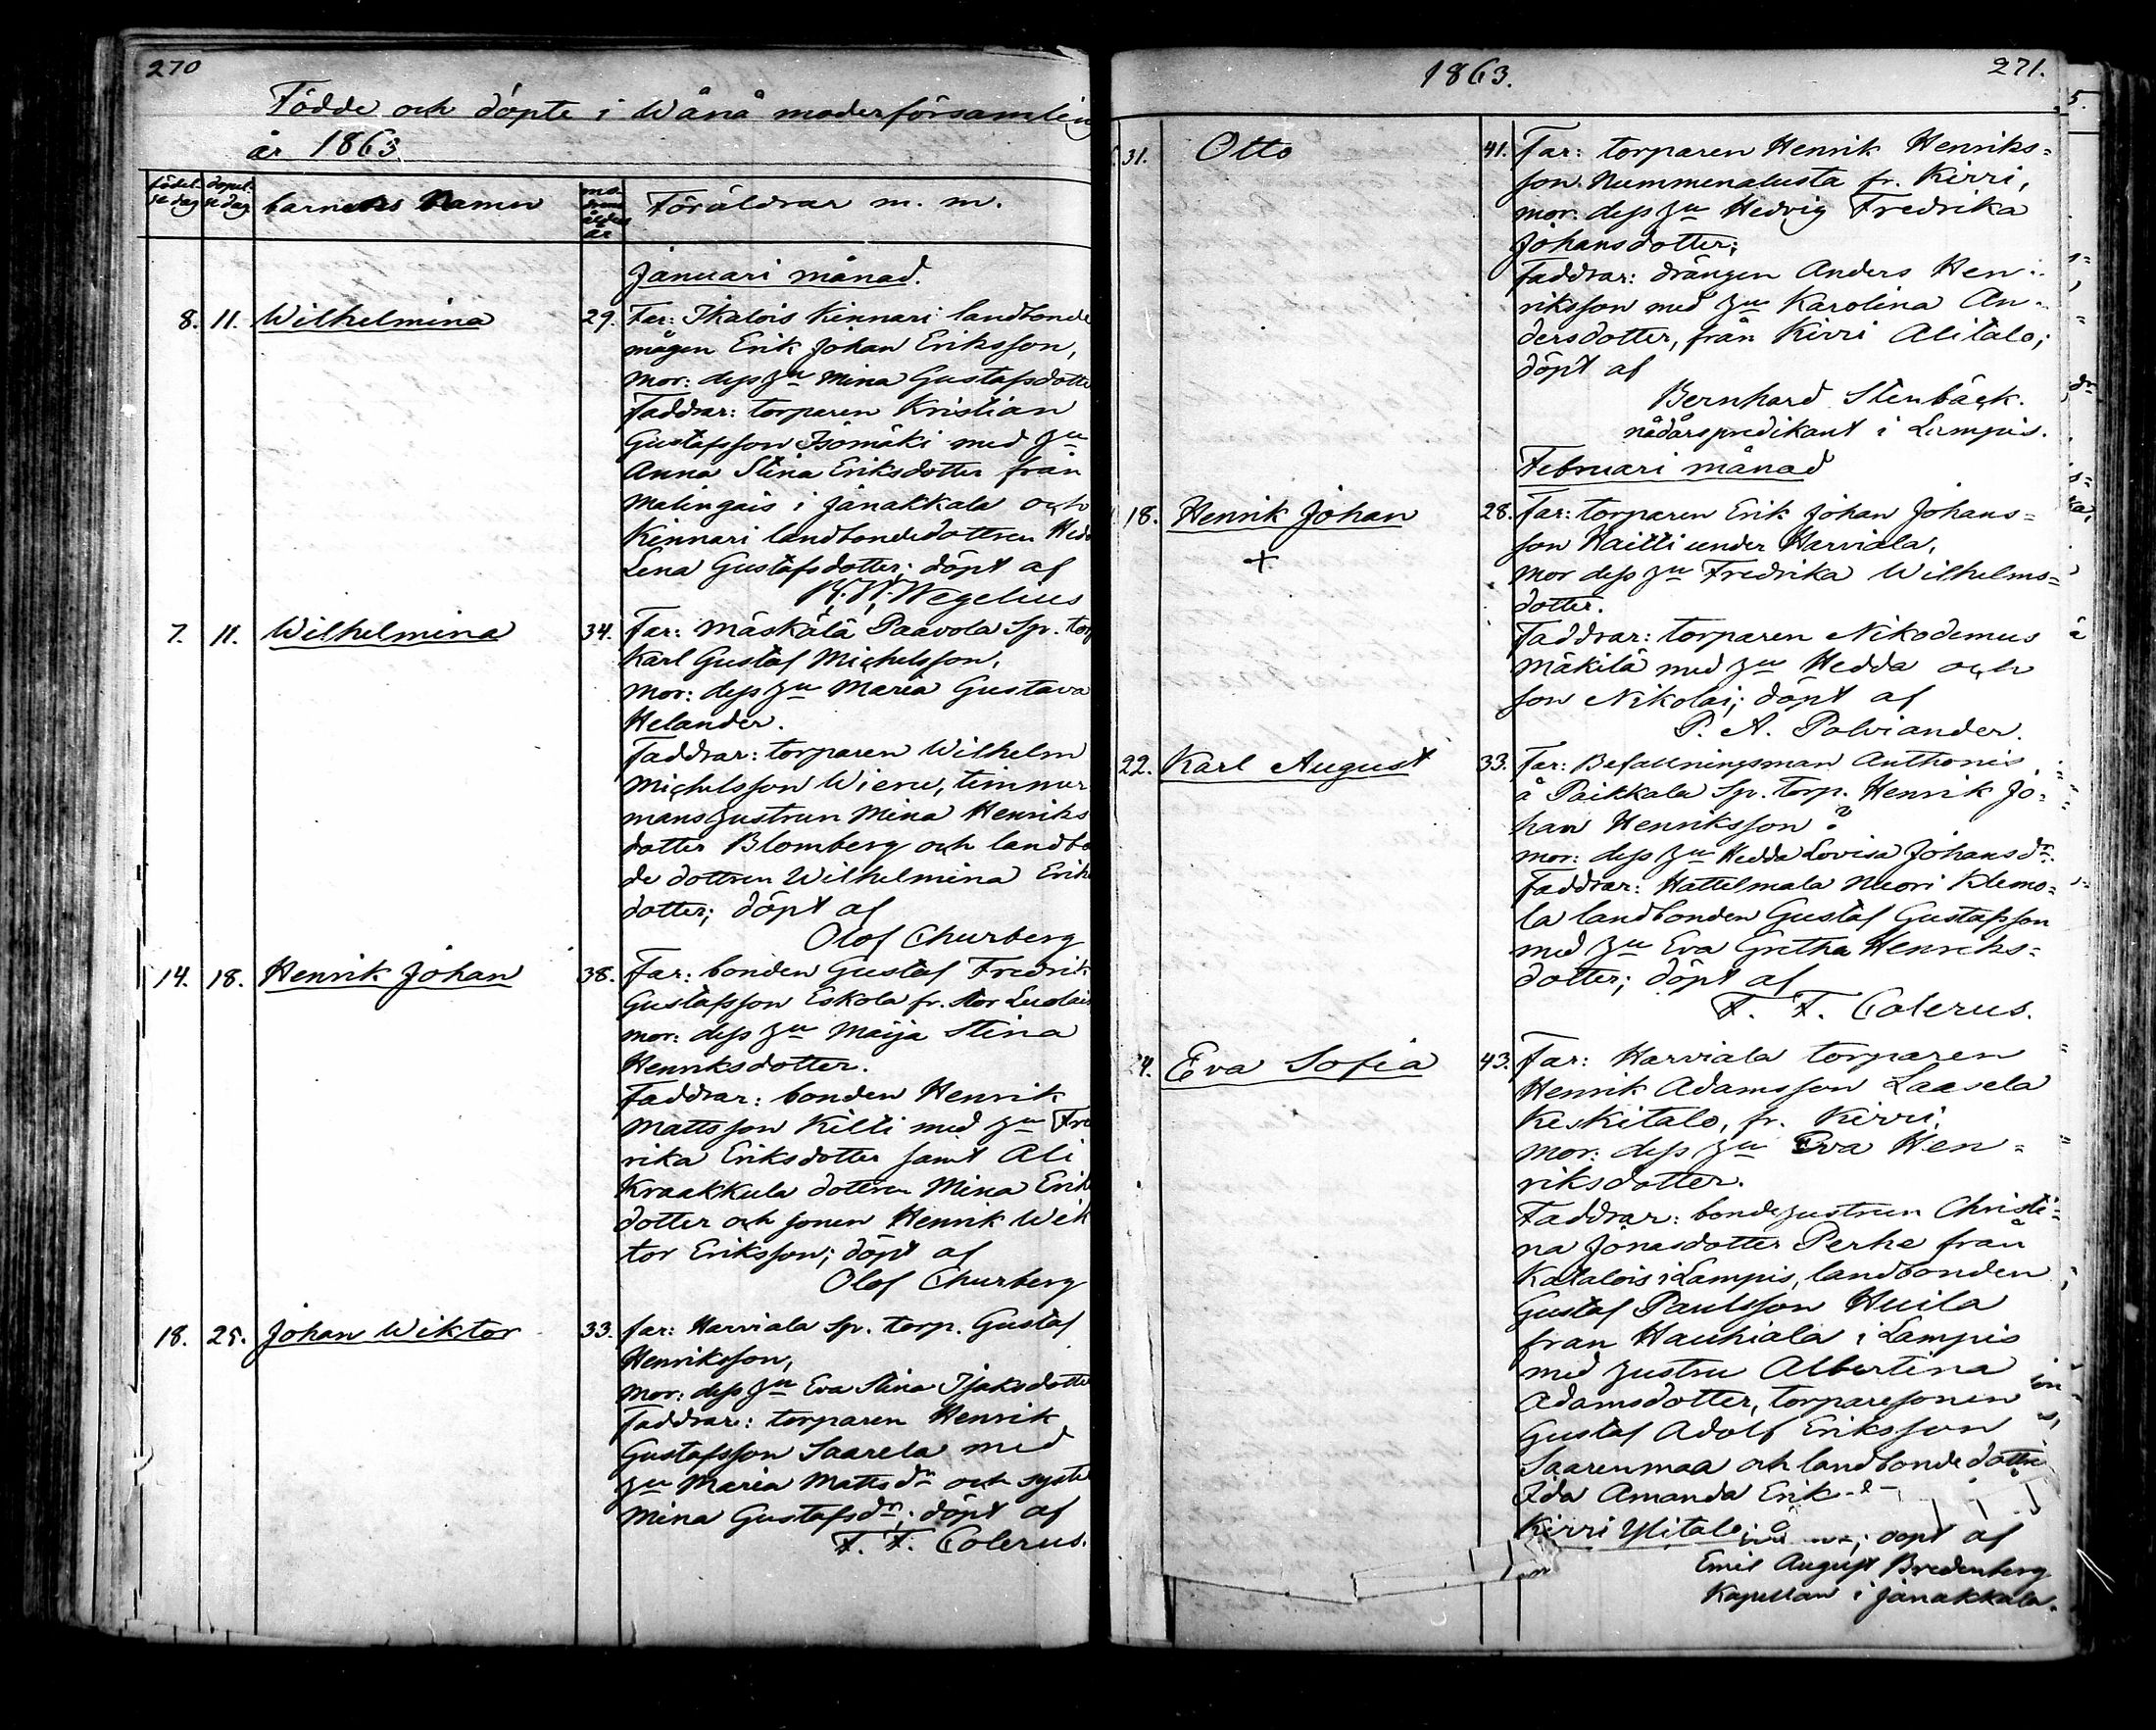 270
Födde och döpte i Wånå moderförsamling
år 1863
födel-
se dag
dopel-
se dag
barnets Namn
mo-
drens
ålder
år
Föräldrar m. m.
Januari månad.
8. 11. Wilhelmina 29. Far: Ikalois Kinnari landbonde
mågen Erik Johan Eriksson,
mor: dess hu Mina Gustafsdotte
Faddrar: torparen Kristian
Gustafsson Isomäki med hu
Anna Stina Eriksdotter från
Malingais i Janakkala och
Kinnari landbondedottren Hed
Lena Gustafsdotter; döpt af
Wegelius
7. 11. Wilhelmina 34. Far: Mäskälä Paavola Sp. torp
Karl Gustaf Michelsson,
mor: dess hu Maria Gustava
Helander.
Faddrar: torparen Wilhelm
Michelsson Wieru, timmer
manshustrun Mina Henriks
dotter Blomberg och landbo
de dottren Wilhelmina Eriks
dotter; döpt af
Olof Churberg
14. 18. Henrik Johan 38. Far: bonden Gustaf Fredrik
Gustafsson Eskola fr. Stor Luolais
mor: dess hu Maija Stina
Henriksdotter.
Faddrar: bonden Henrik
Mattsson Kilti med hu Fre
rika Eriksdotter samt Ali
Kraakkula dottren Mina Eriks
dotter och sonen Henrik Wik
tor Eriksson; döpt af
Olof Churberg
18. 25. Johan Wiktor 33. far: Harviala sp. torp. Gustaf
Henriksson,
mor: dess hu Eva Stina Isaksdotte
Faddrar: torparen Henrik
Gustafsson Saarela med
hu Maria Mattsdr och syste
Mina Gustafsdr; döpt af
F. F. Colerus.
1863.
271.
31. Otto 41. Far: torparen Henrik Henriks=
son Nummenalusta fr. Kirri,
mor: dess hu Hedvig Fredrika
Johansdotter;
Faddrar: drängen Anders Hen-
riksson med hu Karolina An-
dersdotter, från Kirri Alitalo;
döpt af
Bernhard Stenbäck.
nådårspredikant i Lampis.
Februari månad
18. Henrik Johan 28. Far: torparen Erik Johan Johans=
+
son Haitti under Harviala,
mor dess hu Fredrika Wilhelms=
dotter.
Faddrar: torparen Nikodemus
Mäkilä med hu Hedda och
son Nikolai; döpt af
P. A. Polviander.
22. Karl August 33. Far: Befallningsman Anthonis
å Paikkala Sp. torp. Henrik Jo-
han Henriksson?
mor: dess hu Hedda Lovisa Johansdr.
Faddrar: Hattelmala Nuori Klemo=
la landbonden Gustaf Gustafsson
med hu Eva Gretha Henriks=
dotter; döpt af
F. F. Colerus.
24. Eva Sofia 43. Far: Harviala torparen
Henrik Adamsson Laasela
Keskitalo, fr. Kirri,
mor: dess hu Eva Hen-
riksdotter.
Faddrar: bondehustrun Christi-
na Jonasdotter Perhe från
Katalois i Lampis, landbonden
Gustaf Paulsson Huila
från Hauhiala i Lampis
med hustru Albertina
Adamsdotter, torparesonen
Gustaf Adolf Eriksson
Saarenmaa och landbonde dotter
Ida Amanda Erik
Kirri Ylitalo döpt af
Emil August Bredenberg
Kapellan i Janakkala.